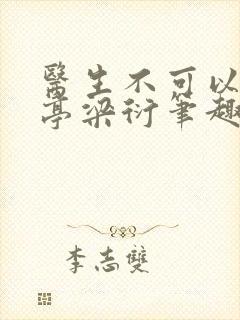 醫生不可以
亭梁衍筆趣
李志雙